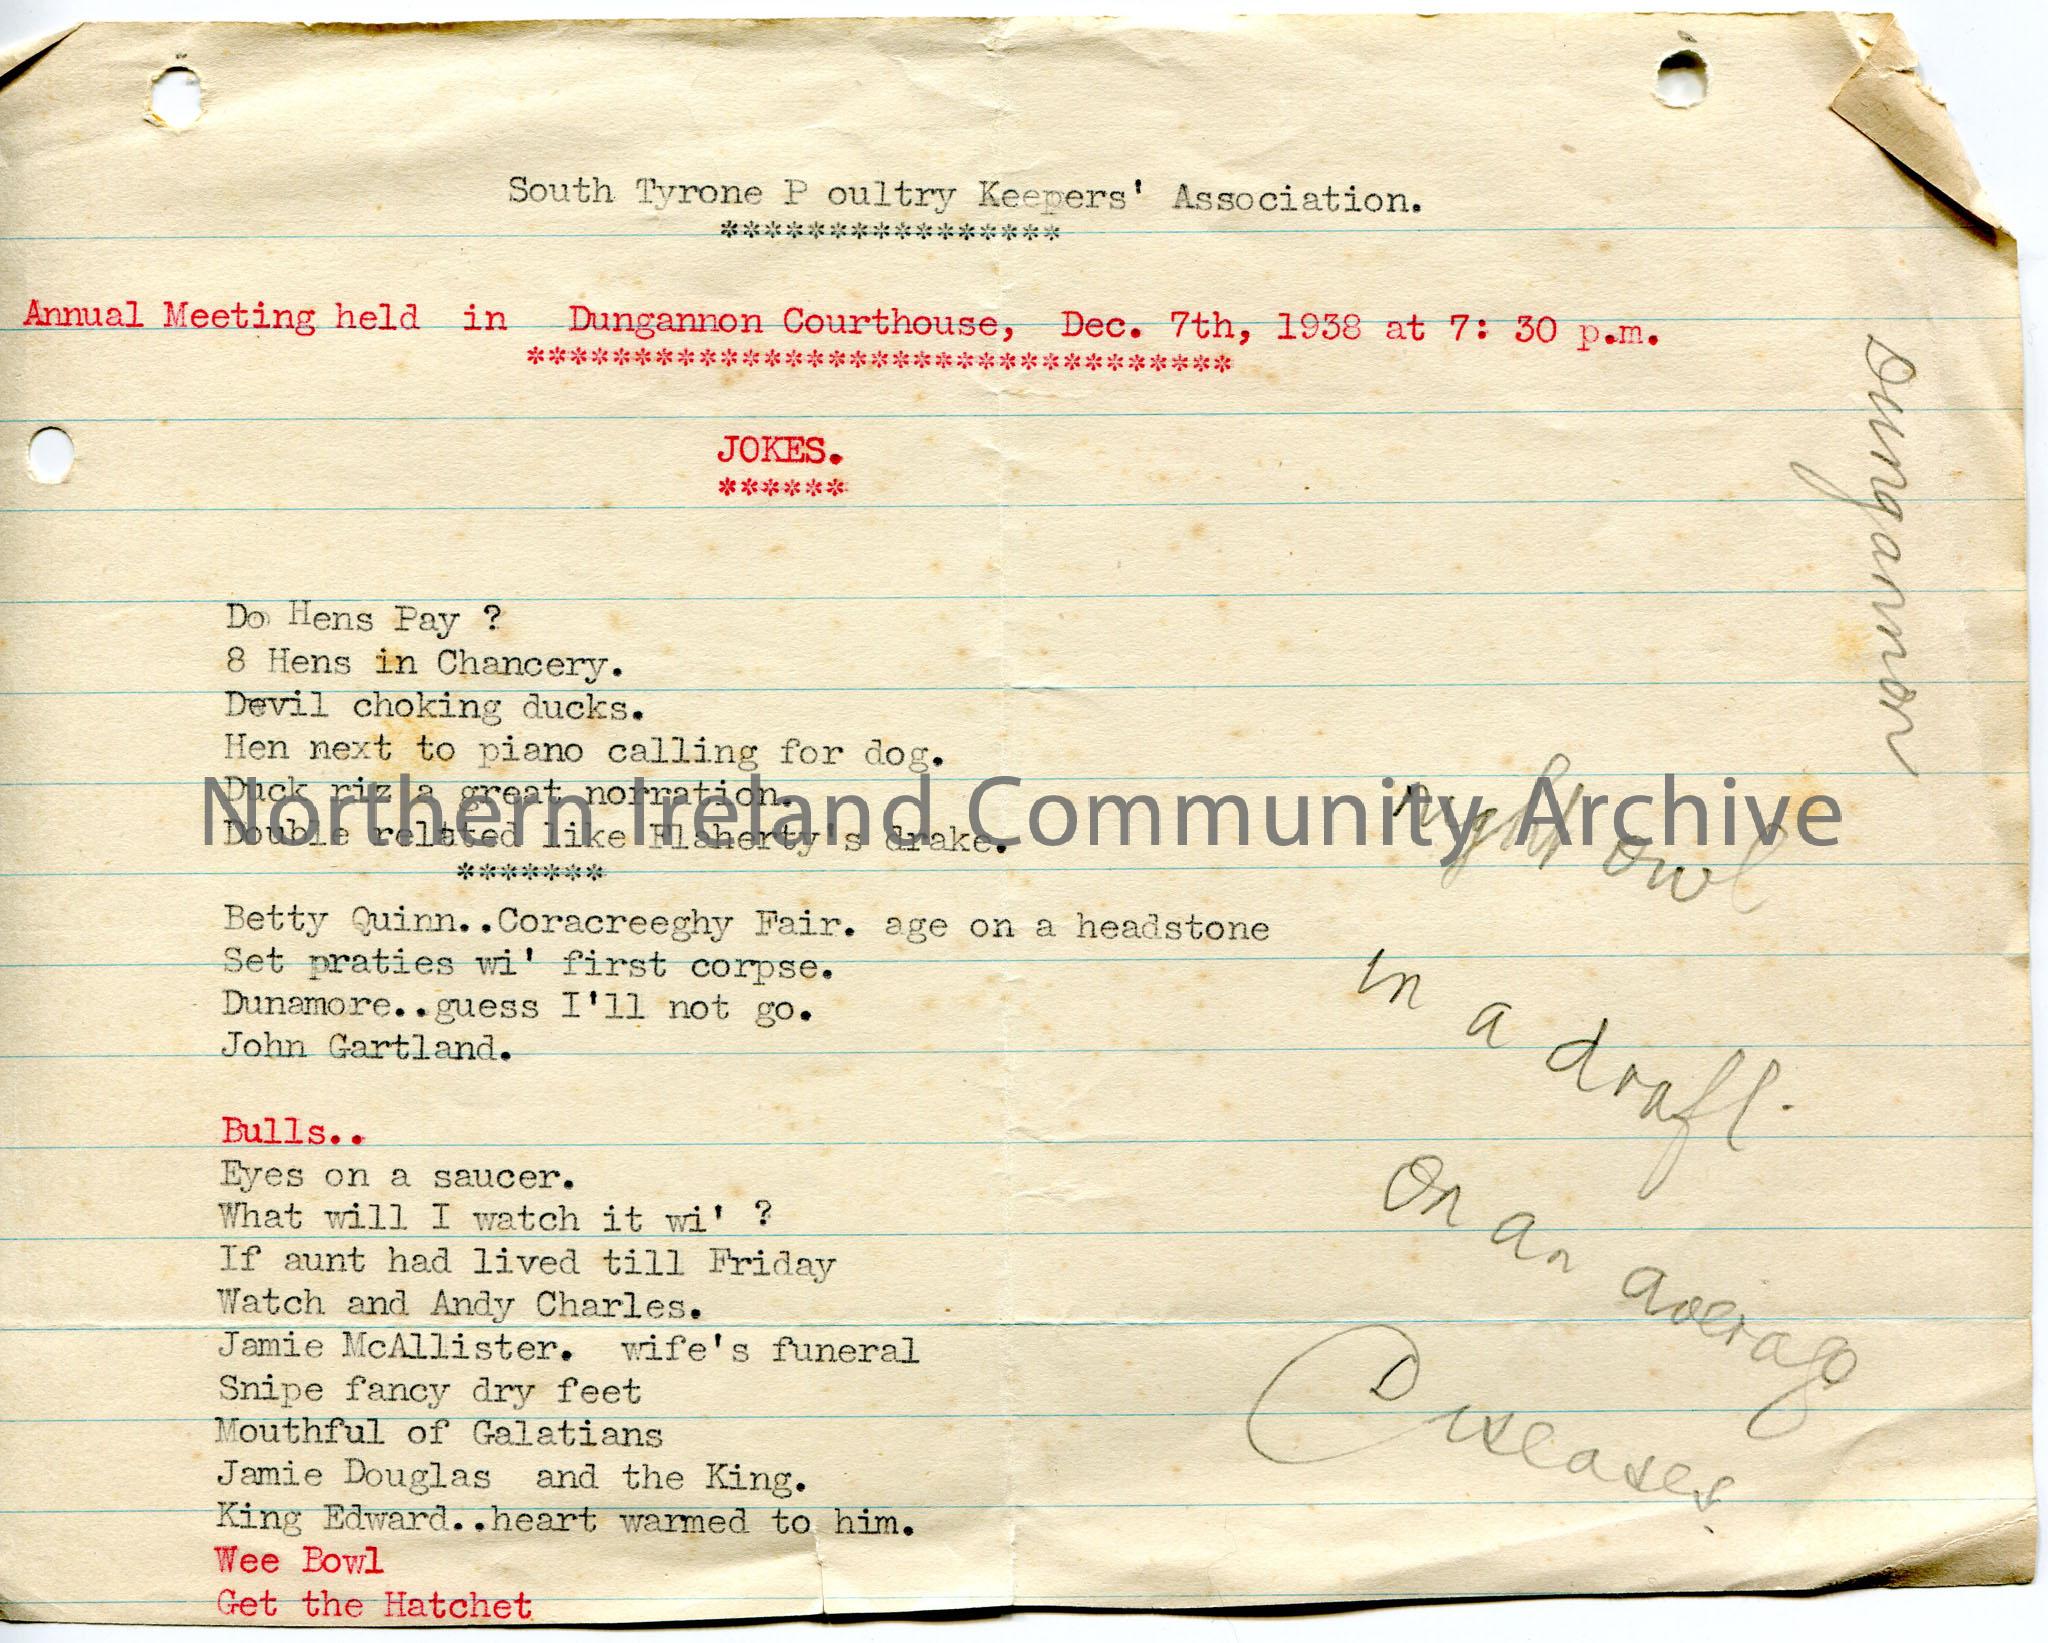 South Tyrone P oultry Keepers' Association.
****************
Annual Meeting held in Dungannon Courthouse, Dec. 7th, 1938 at 7: 30 p.m.
*********************************
JOKES.
******
Do Hens Pay ?
8 Hens in Chancery.
Devil choking ducks.
Hen next to piano calling for dog.
Duck riz a great norration.
Double related like Flaherty's drake.
*******
Betty Quinn..Coracreeghy Fair. age on a headstone
Set praties wi' first corpse.
Dunamore..guess I'll not go.
John Gartland.
Bulls..
Eyes on a saucer.
What will I watch it wi' ?
If aunt had lived till Friday
Watch and Andy Charles.
Jamie McAllister. wife's funeral
Snipe fancy dry feet
Mouthful of Galatians
Jamie Douglas and the King.
King Edward..heart warmed to him.
Wee Bowl
Get the Hatchet
Dungannon
night owl
in a draft.
On an average
Diseases.
Northern Ireland Community Archive